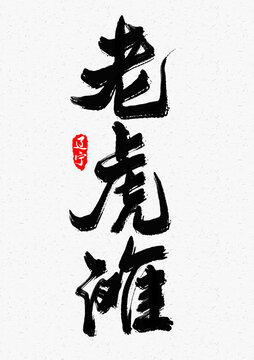 老虎滩
辽宁